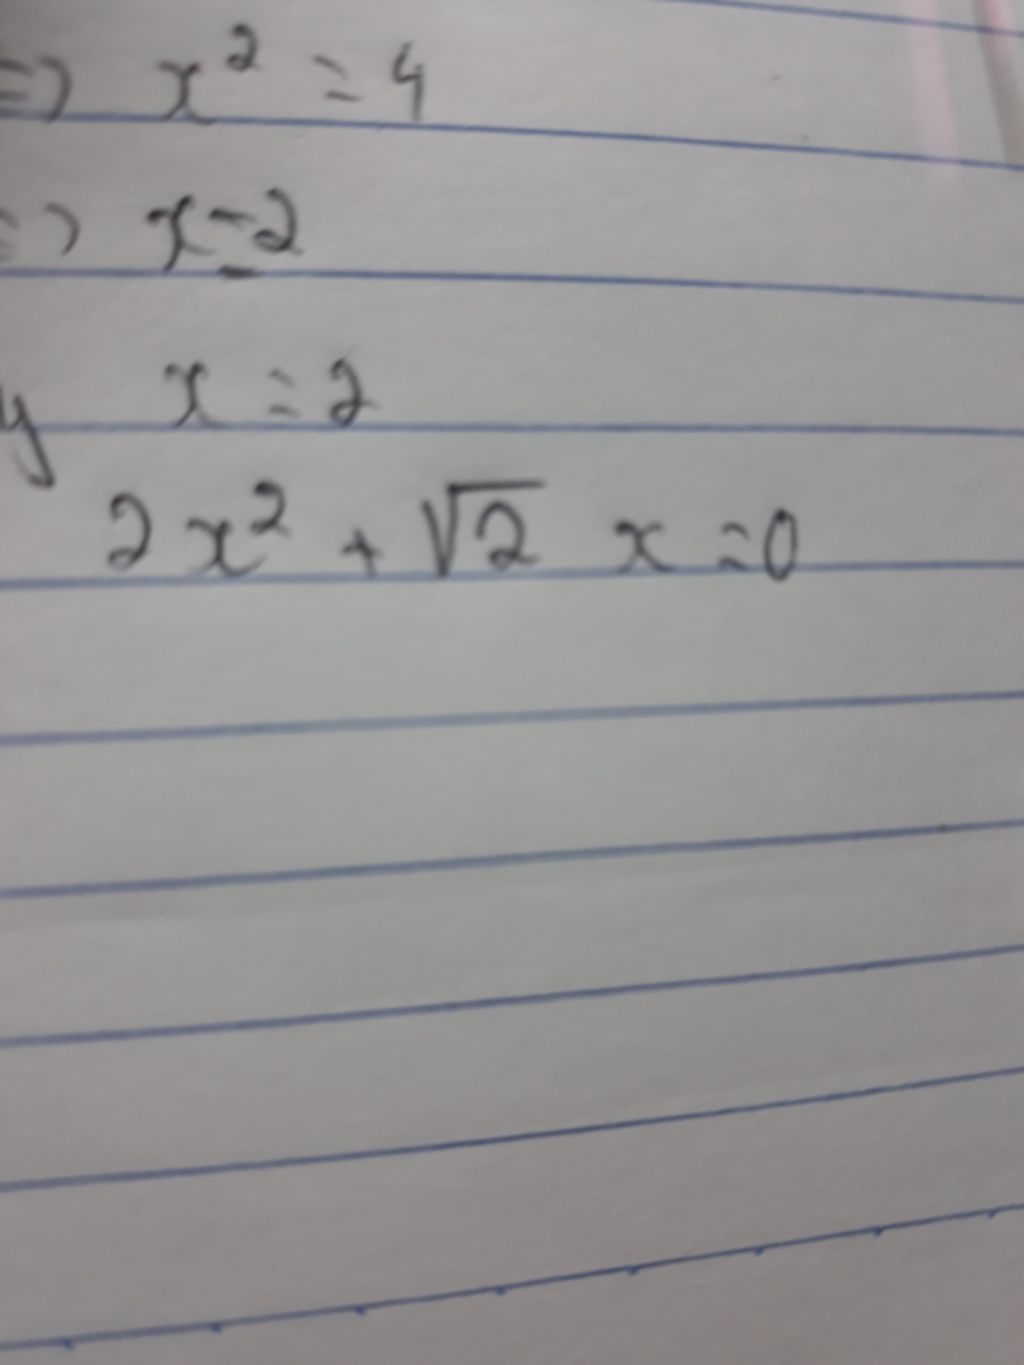 => x² = 4
=> x = 2
y x = 2
2x² + √2 x = 0